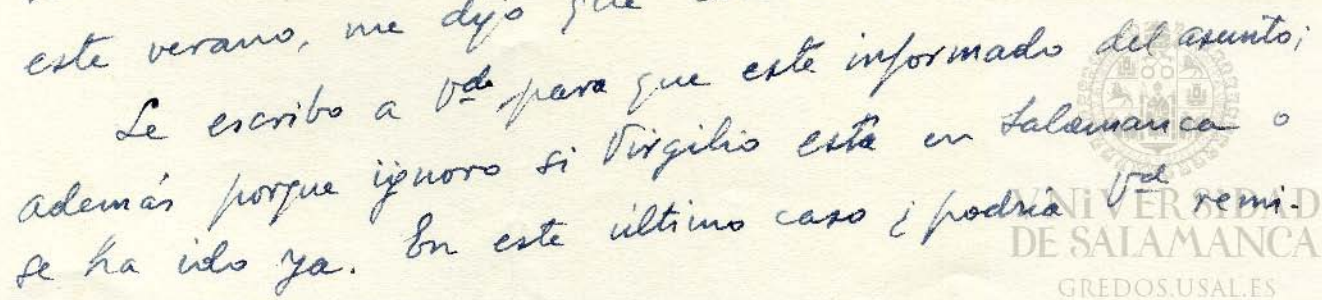 este verano, me dijo que
Le escribo a Vd para que esté informado del asunto;
además porque ignoro si Virgilio está en Salamanca o
se ha ido ya. En este último caso ¿podría Vd remi-
VNiVERSIDAD
DE SALAMANCA
GREDOS.USAL.ES